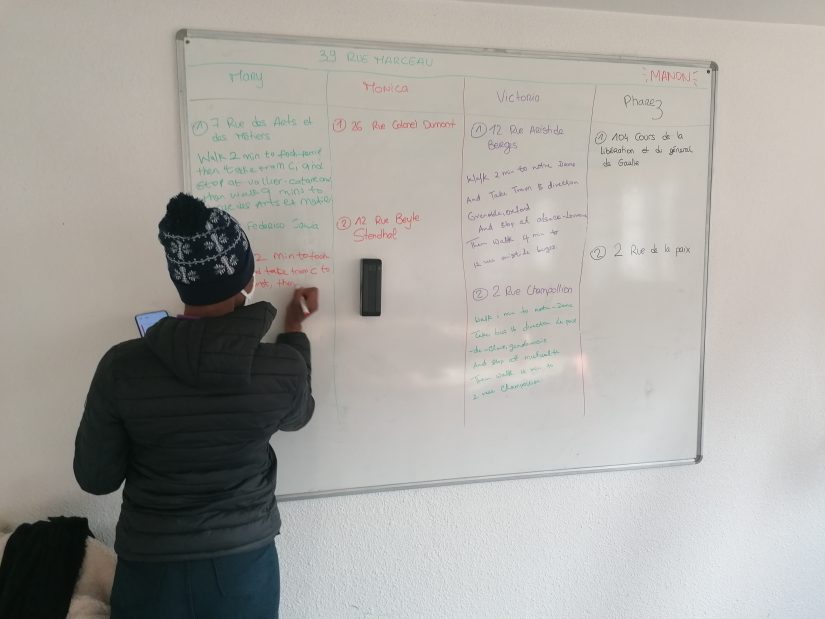 39 RUE MARCEAU
MANON
Mary
① 7 Rue des Arts et
des Métiers
Walk 2 min to
then take tram C, and
stop at vallier-
then walk 9 mins to
des Arts et Métiers
Federico
2 min to
take tram C to
Monica
① 26 Rue Colonel Dumont
② 12 Rue Beyle
Stendhal
Victoria
① 12 Rue Aristide
Berges
Walk 2 min to notre Dame
And Take Tram B direction
Grenoble,
And stop at alsace-
Then walk 4 min to
12 rue aristide berges
② 2 Rue Champollion
Walk 1 min to notre-Dame
Take bus 16 direction
And stop at
Then walk min to
2 rue Champollion
Pharez
① 104 Cours de la
libération et du général
de Gaulle
② 2 Rue de la paix